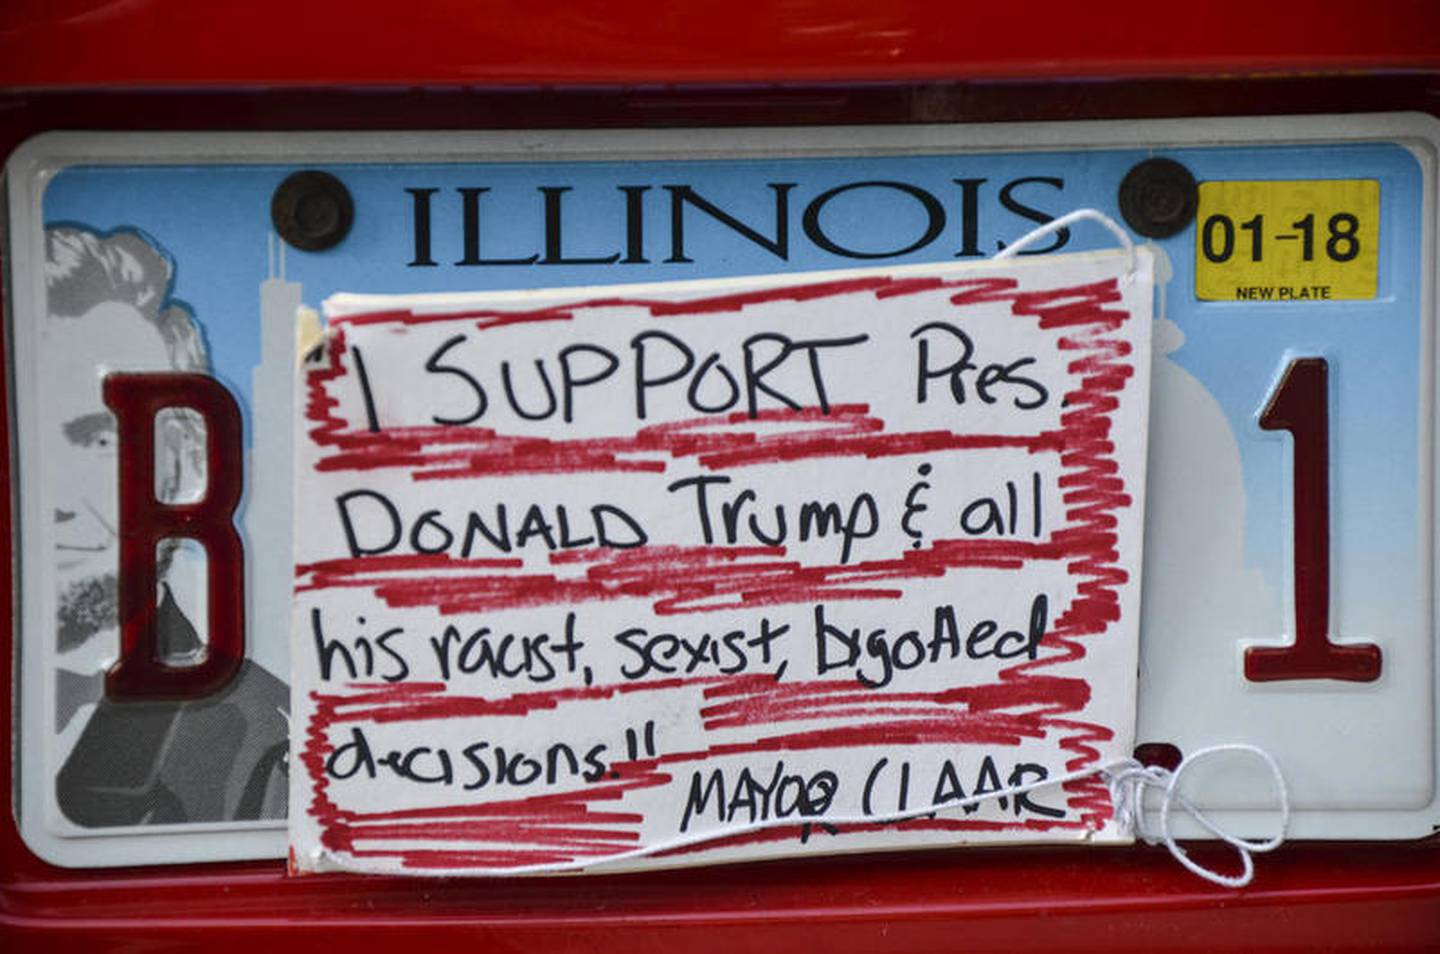 ILLINOIS
01-18
NEW PLATE
B 1
I SUPPORT Pres.
DONALD Trump & all
his racist, sexist, bigotted
decisions."
MAYOR CLAAR